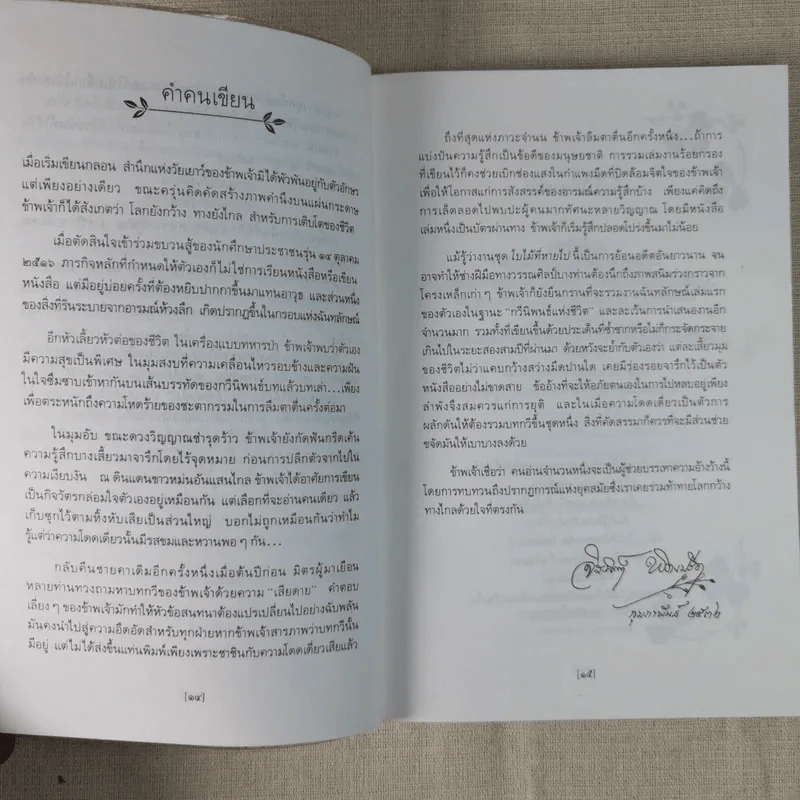 คำคนเขียน
เมื่อเริ่มเขียนกลอน สำนึกแห่งวัยเยาว์ของข้าพเจ้ามิได้พัวพันอยู่กับตัวอักษร
แต่เพียงอย่างเดียว ขณะครุ่นคิดคัดสร้างภาพคำนึงบนแผ่นกระดาษ
ข้าพเจ้าก็ได้สังเกตว่า โลกยังกว้าง ทางยังไกล สำหรับการเติบโตของชีวิต
เมื่อตัดสินใจเข้าร่วมขบวนสู้ของนักศึกษาประชาชนรุ่น ๑๔ ตุลาคม
๒๕๑๖ ภารกิจหลักที่กำหนดให้ตัวเองก็ไม่ใช่การเรียนหนังสือหรือเขียน
หนังสือ แต่มีอยู่บ่อยครั้งที่ต้องหยิบปากกาขึ้นมาแทนอาวุธ และส่วนหนึ่ง
ของสิ่งที่รินระบายจากอารมณ์ห้วงลึก เกิดปรากฏขึ้นในกรอบแห่งฉันทลักษณ์
อีกหัวเลี้ยวหัวต่อของชีวิต ในเครื่องแบบทหารป่า ข้าพเจ้าพบว่าตัวเอง
มีความสุขเป็นพิเศษ ในมุมสงบที่ความเคลื่อนไหวรอบข้างและความฝัน
ในใจซึมซาบเข้าหากันบนเส้นบรรทัดของกวีนิพนธ์บทแล้วบทเล่า...เพียง
เพื่อตระหนักถึงความโหดร้ายของชะตากรรมในการลืมตาตื่นครั้งต่อมา
ในมุมอับ ขณะดวงวิญญาณชำรุดร้าว ข้าพเจ้ายังกัดฟันกรีดเค้น
ความรู้สึกบางเสี้ยวมาจารึกโดยไร้จุดหมาย ก่อนการปลีกตัวจากไปใน
ความเงียบงัน ณ ดินแดนขาวหม่นอันแสนไกล ข้าพเจ้าได้อาศัยการเขียน
เป็นกิจวัตรกล่อมใจตัวเองอยู่เหมือนกัน แต่เลือกที่จะอ่านคนเดียว แล้ว
เก็บซุกไว้ตามทิ้งทับเสียเป็นส่วนใหญ่ บอกไม่ถูกเหมือนกันว่าทำไม
รู้แต่ว่าความโดดเดี่ยวนั้นมีรสขมและหวานพอ ๆ กัน...
กลับคืนชายคาเดิมอีกครั้งหนึ่งเมื่อต้นปีก่อน มิตรผู้มาเยือน
หลายท่านทวงถามหาบทกวีของข้าพเจ้าด้วยความ "เสียดาย" คำตอบ
เลี่ยง ๆ ของข้าพเจ้ามักทำให้หัวข้อสนทนาต้องแปรเปลี่ยนไปอย่างฉับพลัน
มันคงนำไปสู่ความอึดอัดสำหรับทุกฝ่ายหากข้าพเจ้าสารภาพว่าบทกวีนั้น
มีอยู่ แต่ไม่ได้ส่งขึ้นแท่นพิมพ์เพียงเพราะชาชินกับความโดดเดี่ยวเสียแล้ว
[๑๔]
ถึงที่สุดแห่งภาวะจำนน ข้าพเจ้าลืมตาตื่นอีกครั้งหนึ่ง...ถ้าการ
แบ่งปันความรู้สึกเป็นข้อดีของมนุษยชาติ การรวมเล่มงานร้อยกรอง
ที่เขียนไว้ก็คงช่วยเบิกช่องแสงในกำแพงมืดที่ปิดล้อมจิตใจของข้าพเจ้า
เพื่อให้โอกาสแก่การสังสรรค์ของอารมณ์ความรู้สึกบ้าง เพียงแค่คิดถึง
การเล็ดลอดไปพบปะผู้คนมากทัศนะหลายวิญญาณ โดยมีหนังสือ
เล่มหนึ่งเป็นบัตรผ่านทาง ข้าพเจ้าก็เริ่มรู้สึกปลอดโปร่งขึ้นมาไม่น้อย
แม้รู้ว่างานชุด ใบไม้ที่หายไป นี้เป็นการย้อนอดีตอันยาวนาน จน
อาจทำให้ช่างฝีมือทางวรรณศิลป์บางท่านต้องนึกถึงภาพสนิมร่วงกราวจาก
โครงเหล็กเก่า ๆ ข้าพเจ้าก็ยังยืนกรานที่จะรวมงานฉันทลักษณ์เล่มแรก
ของตัวเองในฐานะ "กวีนิพนธ์แห่งชีวิต" และละเว้นการนำเสนองานอีก
จำนวนมาก รวมทั้งที่เขียนขึ้นด้วยประเด็นที่ซ้ำซากหรือไม่ก็กระจัดกระจาย
เกินไปในระยะสองสามปีที่ผ่านมา ด้วยหวังจะย้ำกับตัวเองว่า แต่ละเสี้ยวมุม
ของชีวิตไม่ว่าแคบกว้างสว่างมืดปานใด เคยมีร่องรอยจารึกไว้เป็นตัว
หนังสืออย่างไม่ขาดสาย ข้ออ้างที่จะให้อภัยตนเองในการไปหลบอยู่เพียง
ลำพังจึงสมควรแก่การยุติ และในเมื่อความโดดเดี่ยวเป็นตัวการ
ผลักดันให้ต้องรวมบทกวีขึ้นชุดหนึ่ง สิ่งที่คัดสรรมาก็ควรที่จะมีส่วนช่วย
ขจัดมันให้เบาบางลงด้วย
ข้าพเจ้าเชื่อว่า คนอ่านจำนวนหนึ่งจะเป็นผู้ช่วยบรรเทาความอ้างว้างนี้
โดยการทบทวนถึงปรากฏการณ์แห่งยุคสมัยซึ่งเราเคยร่วมท้าทายโลกกว้าง
ทางไกลด้วยใจที่ตรงกัน
กุมภาพันธ์ ๒๕๓๒
[๑๕]